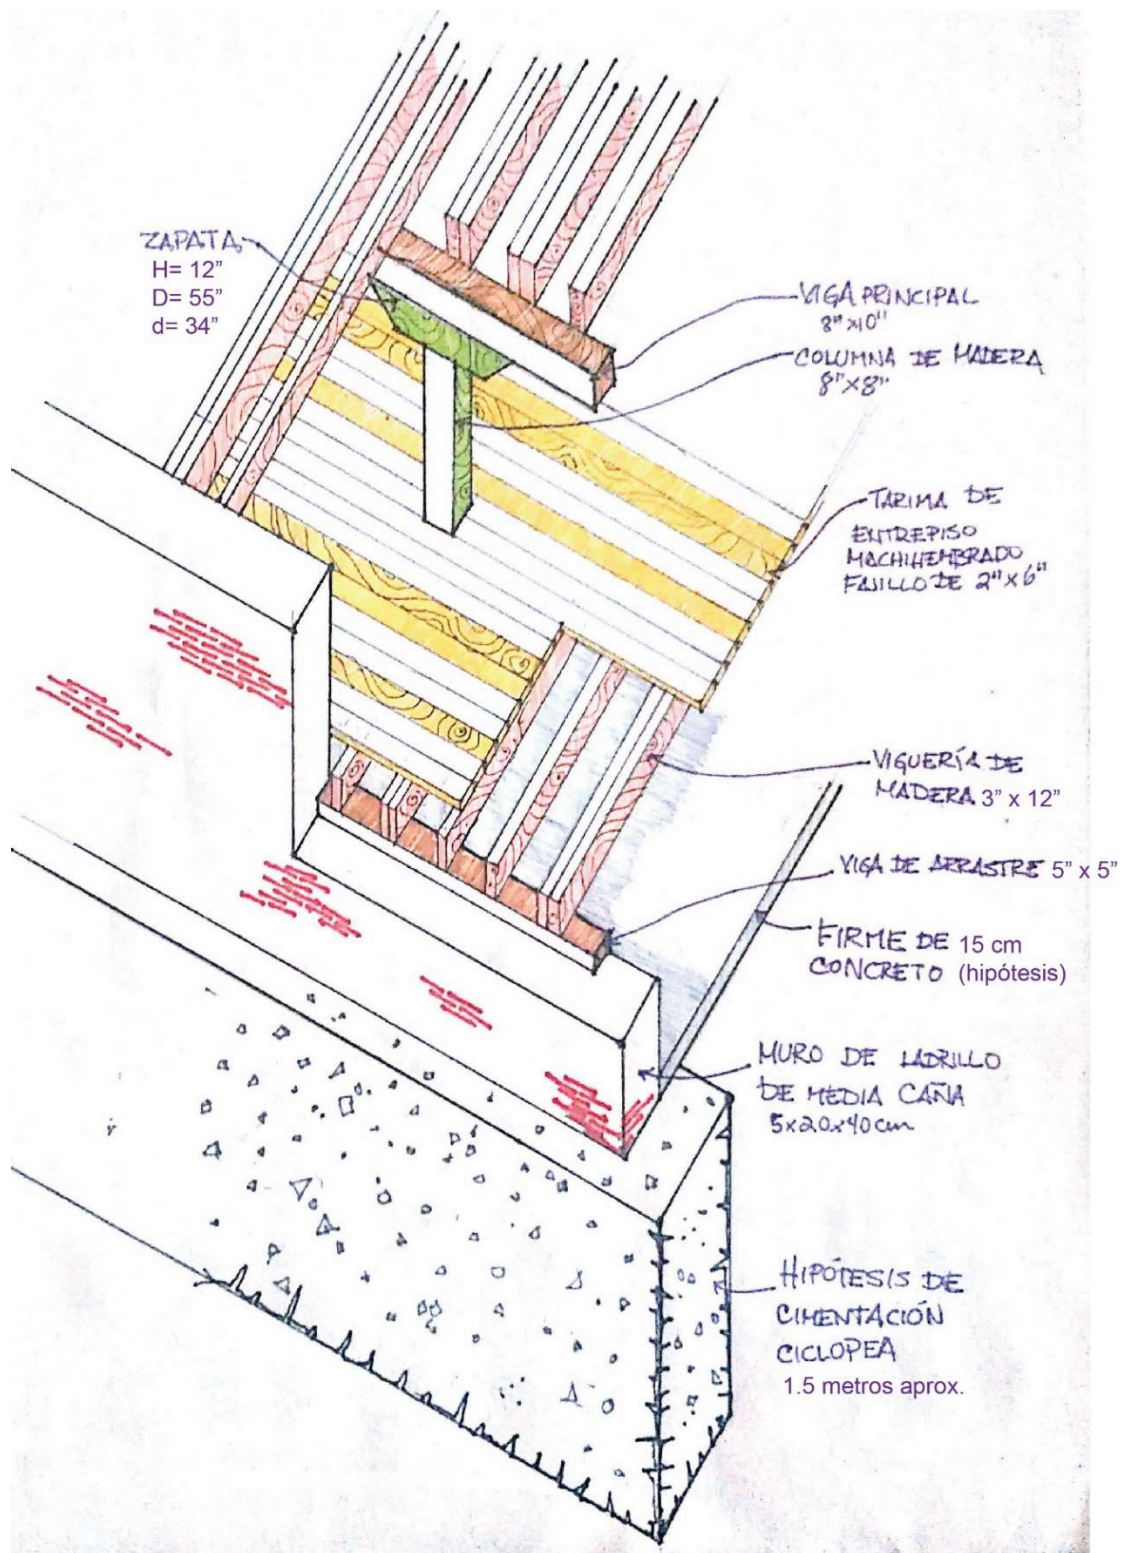 ZAPATA
H= 12"
D= 55"
d= 34"
VIGA PRINCIPAL
8"x10"
COLUMNA DE MADERA
8"x8"
TARIMA DE
ENTREPISO
MACHIHEMBRADO
FAJILLO DE 2"x6"
VIGUERÍA DE
MADERA 3" x 12"
VIGA DE ARRASTRE 5" x 5"
FIRME DE 15 cm
CONCRETO (hipótesis)
MURO DE LADRILLO
DE MEDIA CAÑA
5x20x40cm
HIPÓTESIS DE
CIMENTACIÓN
CICLOPEA
1.5 metros aprox.